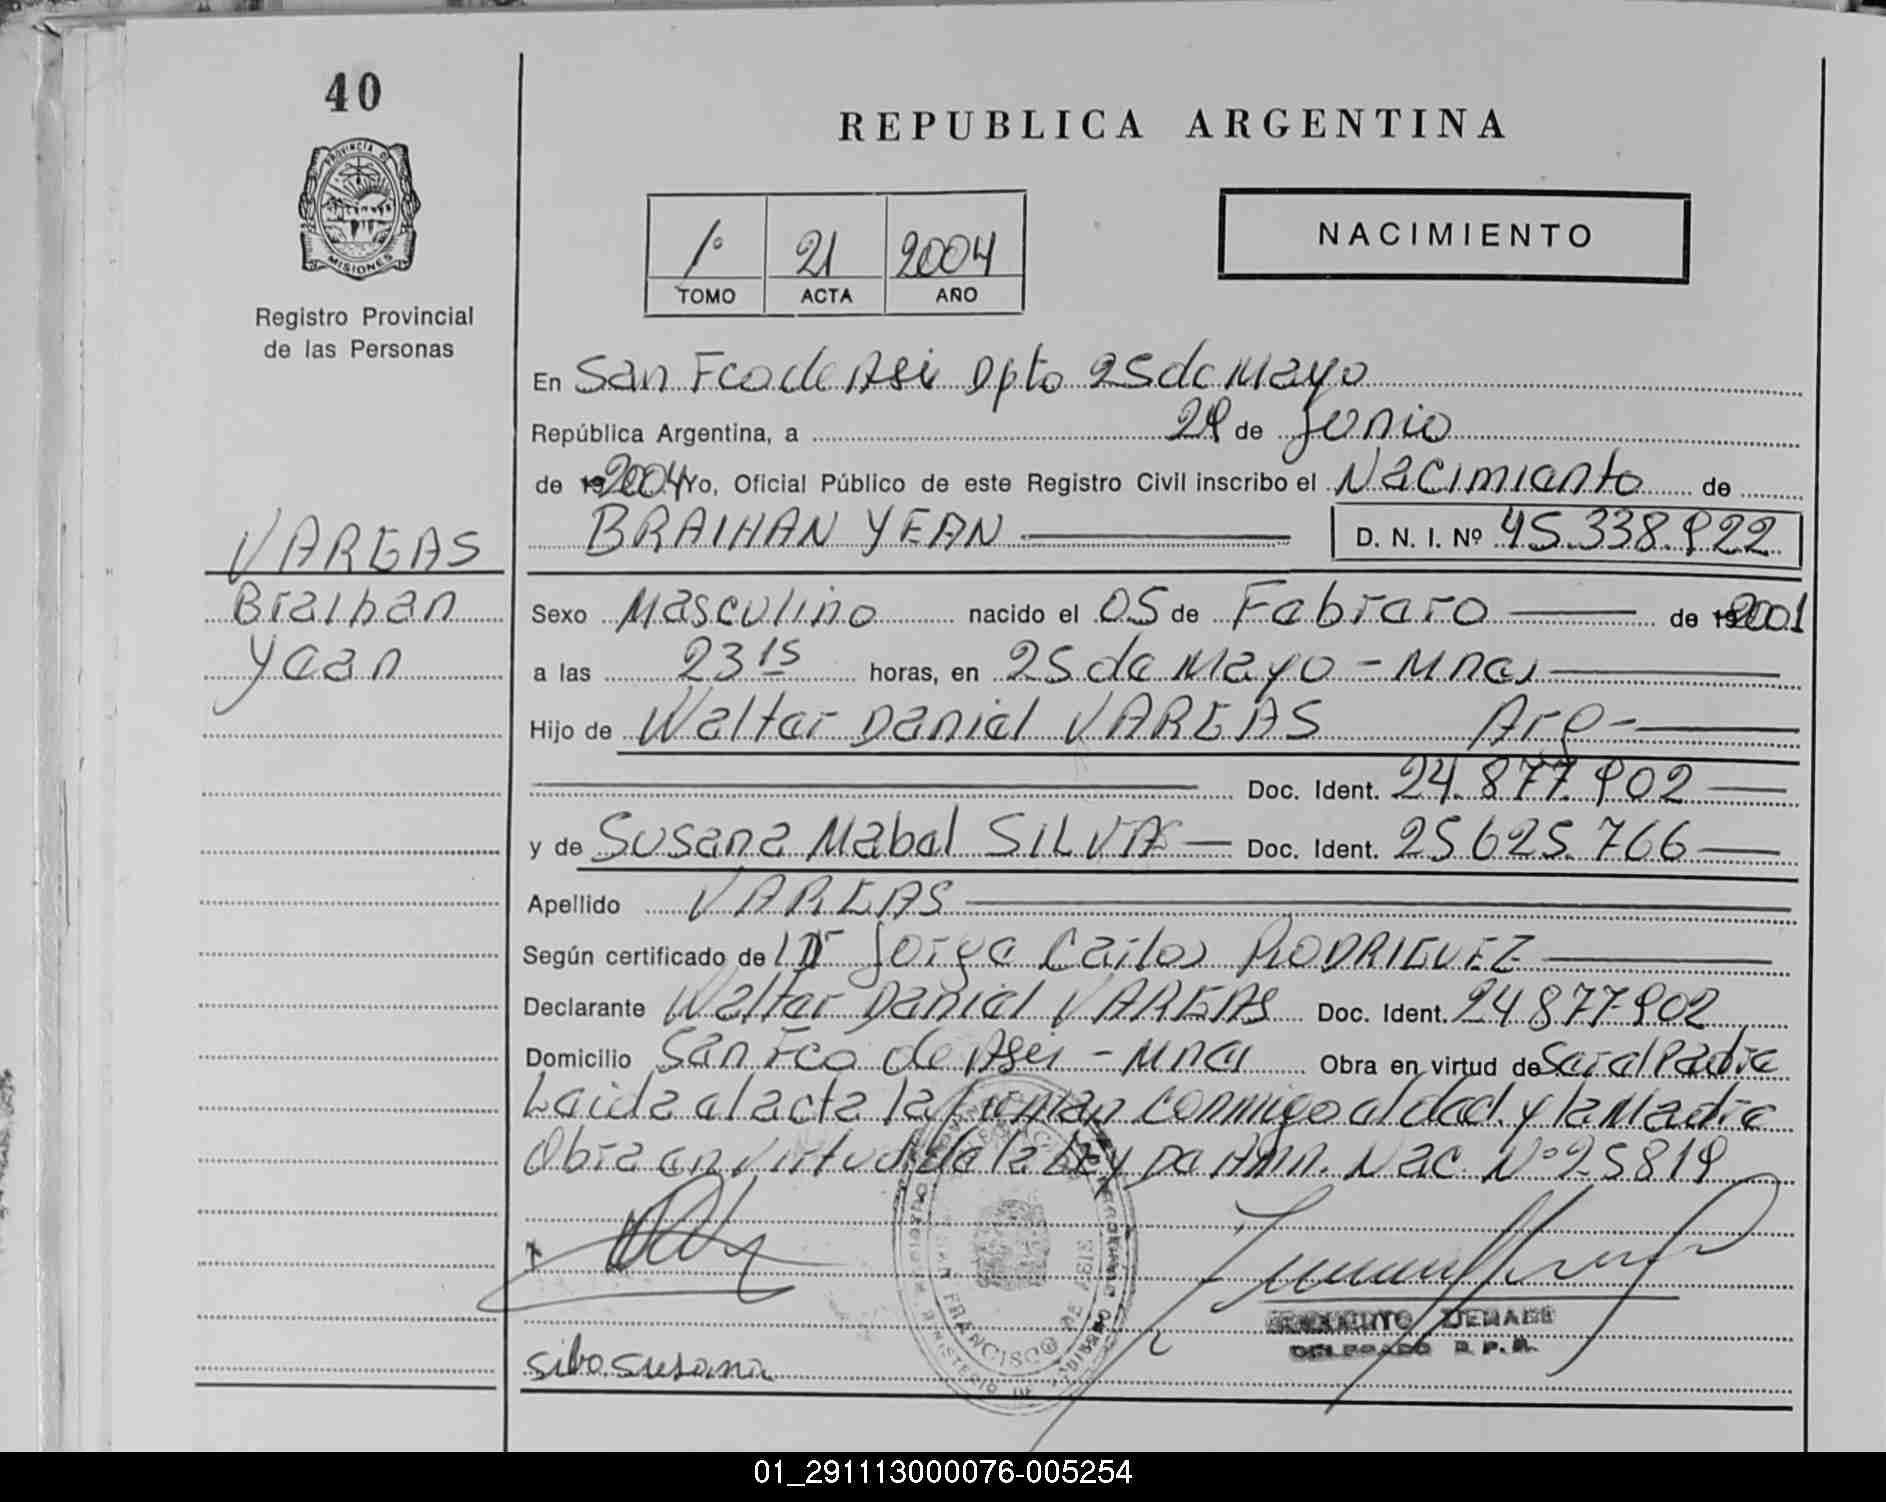 40
PROVINCIA DE
MISIONES
Registro Provincial
de las Personas
VARGAS
Braihan
Yean
REPUBLICA ARGENTINA
1º 21 2004
TOMO ACTA AÑO
NACIMIENTO
En San Fco de Asis Dpto 25 de Mayo
República Argentina, a 29 de Junio
de 19 2004 Yo, Oficial Público de este Registro Civil inscribo el Nacimiento de
BRAIHAN YEAN D. N. I. Nº 45.338.922
Sexo Masculino nacido el 05 de Febrero de 19 2001
a las 23 15 horas, en 25 de Mayo - Mnes
Hijo de Walter Daniel VARGAS Arg -
Doc. Ident. 24.877.902
y de Susana Mabel SILVA Doc. Ident. 25625.766
Apellido VARGAS
Según certificado de Dr Jorge Carlos RODRIGUEZ
Declarante Walter Daniel VARGAS Doc. Ident. 24877902
Domicilio San Fco de Asis - Mnes Obra en virtud de Ser el Padre
Leida el acta la firman conmigo el dad. y la Madre
Obra en virtud de la Ley De Amn. Nac. Nº 25819
FRANCISCO DE ASIS
MINISTERIO DE
DELEGADO R. P. P.
Silva Susana
01_291113000076-005254